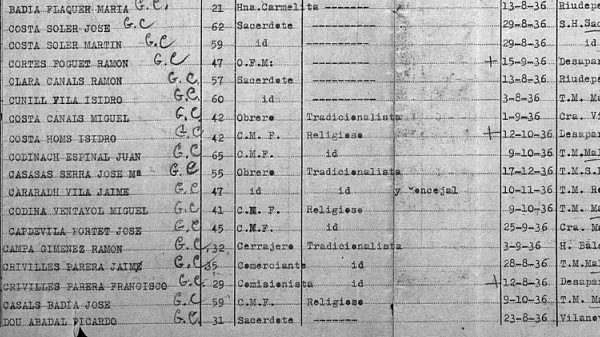 BADIA FLAQUER MARIA G.C. 21 Hna.Carmelita --------- 13-8-36 Riudep
COSTA SOLER JOSE G.C 62 Sacerdote --------- 29-8-36 S.H.Sac
COSTA SOLER MARTIN G.C 59 id --------- 29-8-36 id
CORTES FOGUET RAMON G.C 47 O.F.M: --------- + 15-9-36 Desapar
CLARA CANALS RAMON G.C. 57 Sacerdote --------- 13-8-36 Riudepe
CUNILL VILA ISIDRO G.C. 60 id --------- 3-8-36 T.M. Ma
COSTA CANALS MIGUEL G.C 42 Obrero Tradicionalista 1-9-36 Cra. Vi
COSTA HOMS ISIDRO G.C 42 C.M.F. Religioso + 12-10-36 Desapar
CODINACH ESPINAL JUAN G.C 65 C.M.F. id 9-10-36 T.M.Mal
CASASAS SERRA JOSE Mª G.C 55 Obrero Tradicionalista 17-12-36 T.M.S.
CARARADH VILA JAIME G.C, 47 id id y concejal 10-11-36 T.M. Ro
CODINA VENTAYOL MIGUEL G.C 41 C.M.F. Religioso 9-10-36 T.M. Ma
CAPDEVILA PORTET JOSE G.C 45 C.M.F. id 25-9-36 Cra. Ma
CAMPA GIMENEZ RAMON G.C. 32 Cerrajero Tradicionalista 3-9-36 H. Bál
CRIVILLES PARERA JAIME G.C 35 Comerciante id 28-8-36 T.M.Mal
CRIVILLES PARERA FRANCISCO G.C. 29 Comisionista id + 12-8-36 Desapa
CASALS BADIA JOSE G.C. 59 C.M.F. Religioso 9-10-36 T.M. M
DOU ABADAL RICARDO G.C. 31 Sacerdote ------- 23-8-36 Vilano